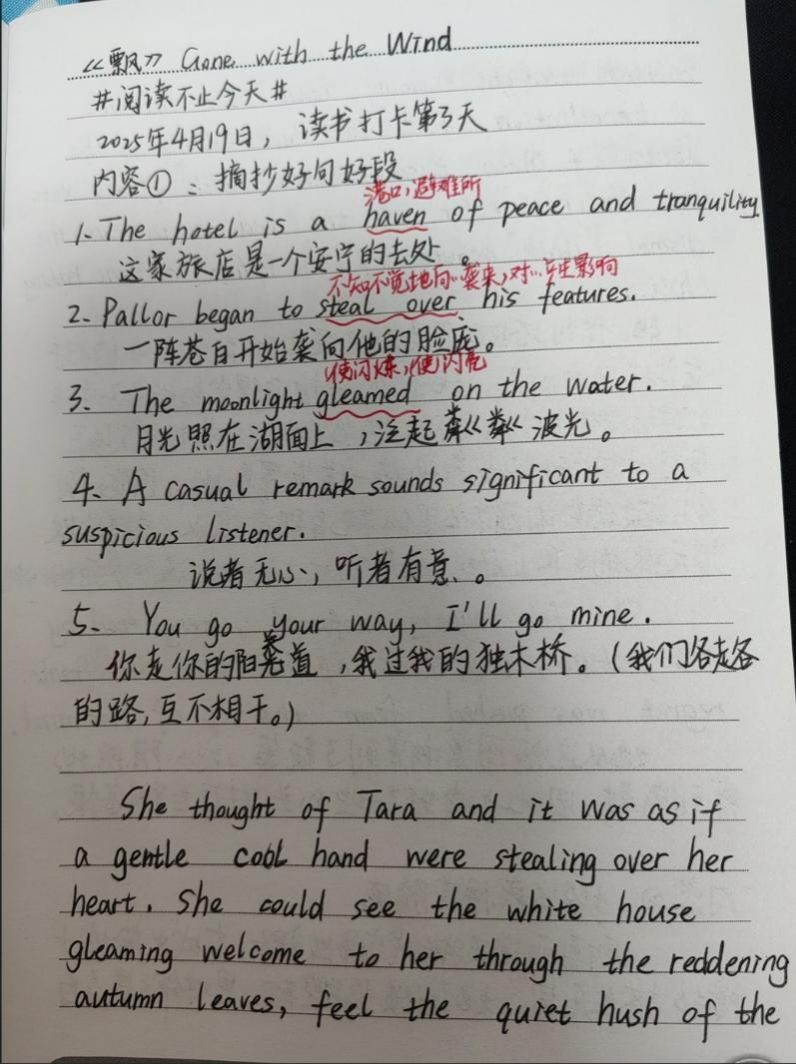 《飘》 Gone with the Wind
#阅读不止今天#
2025年4月19日，读书打卡第3天
内容①：摘抄好句好段
港口，避难所
1. The hotel is a haven of peace and tranquility
这家旅店是一个安宁的去处。
不知不觉地向…袭来，对…产生影响
2. Pallor began to steal over his features.
一阵苍白开始袭向他的脸庞。
使闪烁，使闪亮
3. The moonlight gleamed on the water.
月光照在湖面上，泛起粼粼波光。
4. A casual remark sounds significant to a
suspicious listener.
说者无心，听者有意。
5. You go your way, I'll go mine.
你走你的阳关道，我过我的独木桥。（我们各走各
的路，互不相干。）
She thought of Tara and it was as if
a gentle cool hand were stealing over her
heart. She could see the white house
gleaming welcome to her through the reddening
autumn leaves, feel the quiet hush of the